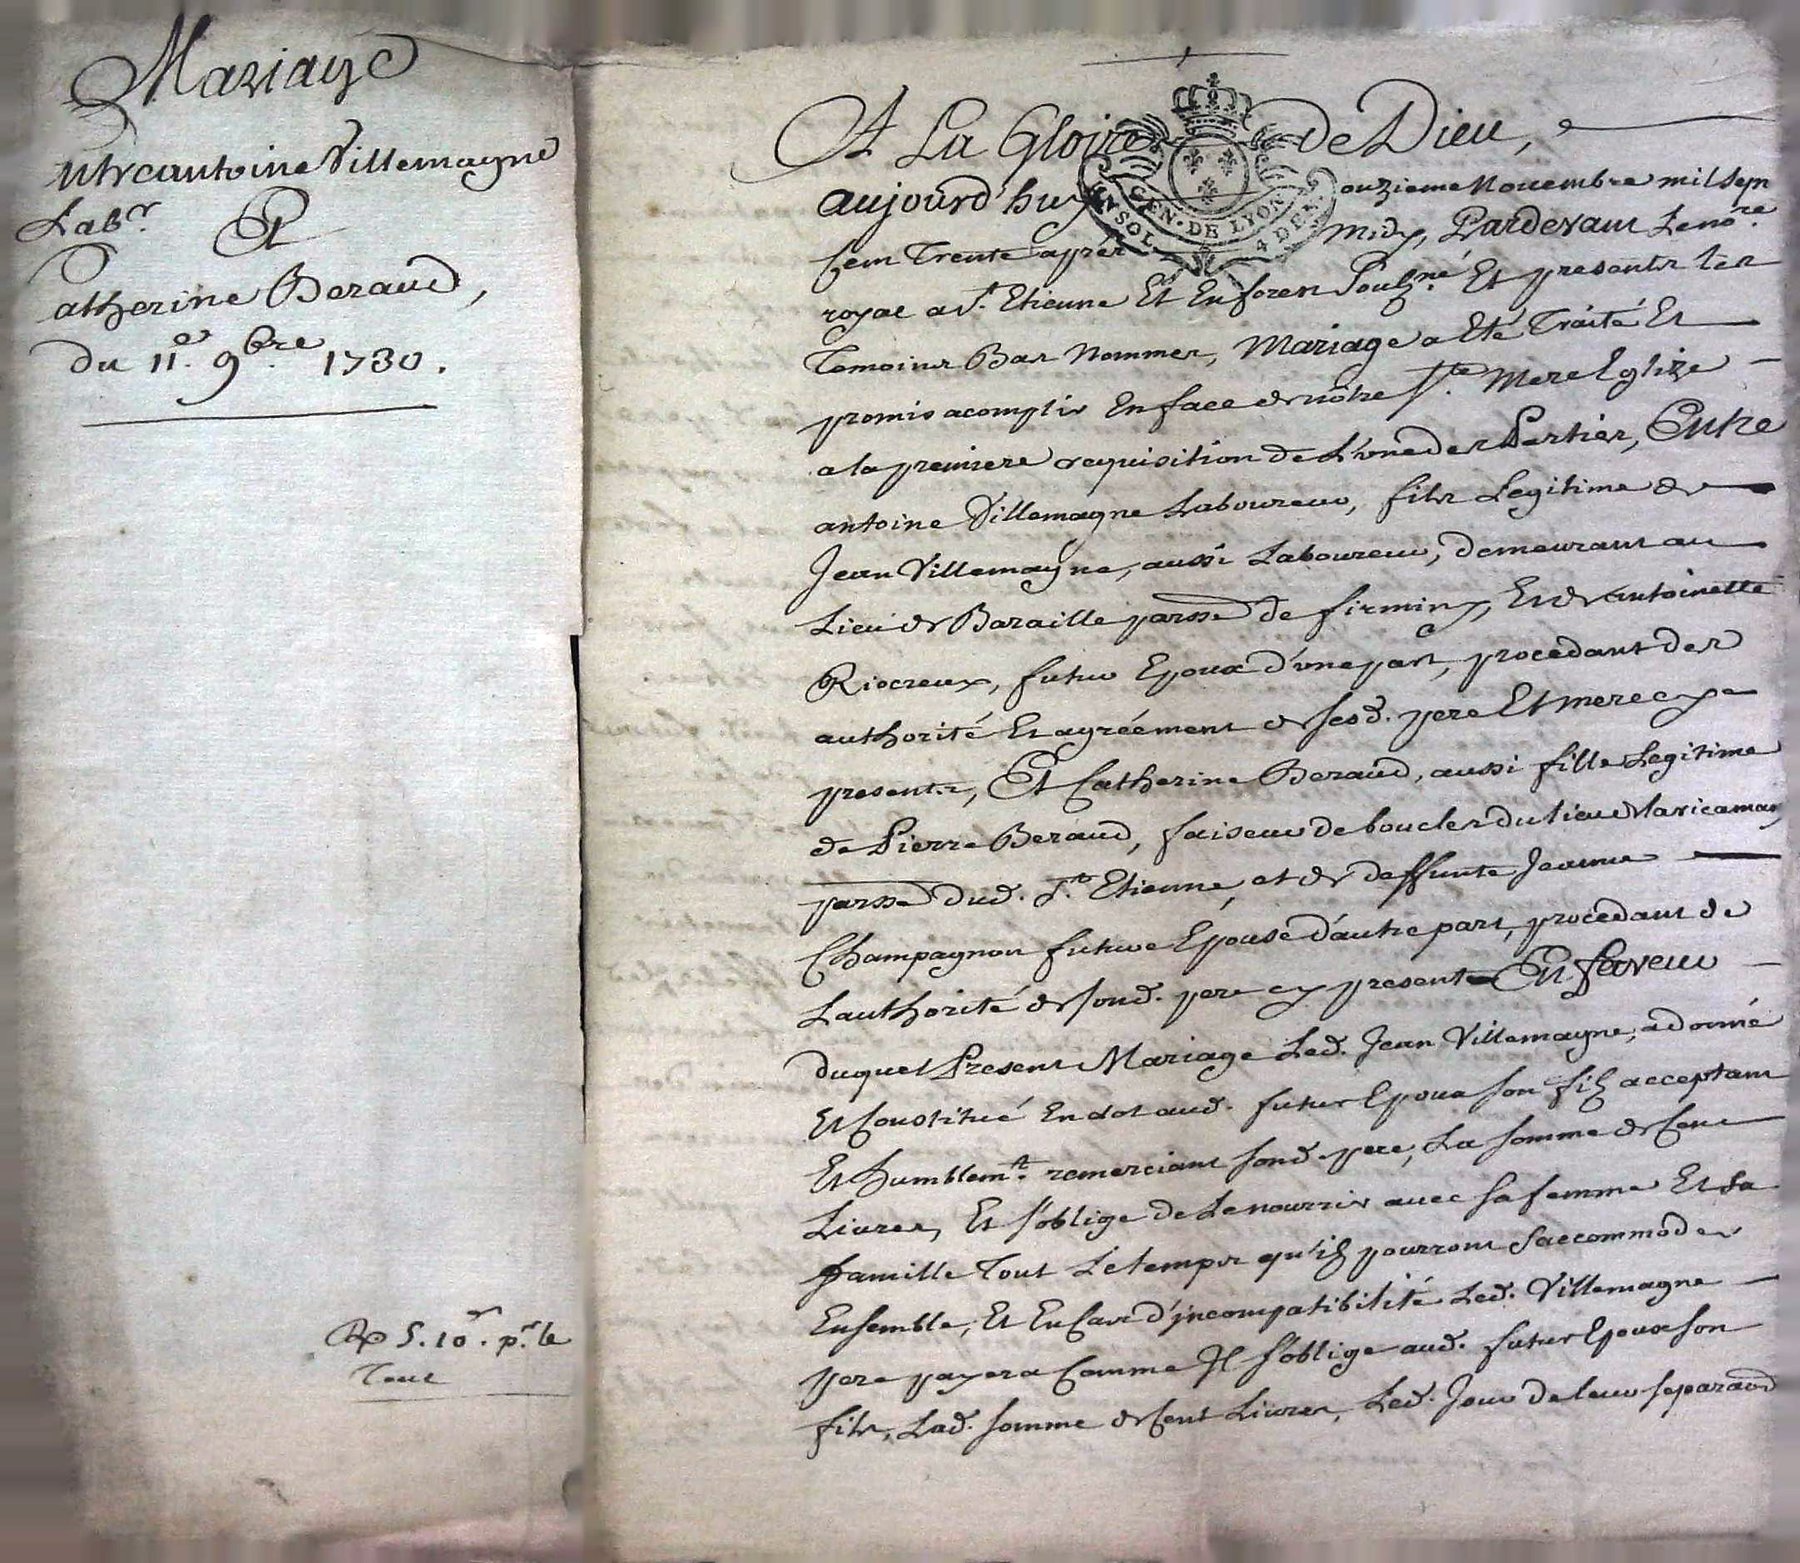 Mariage
Entre antoine Villemagne
Labr. Et
Catherine Beraud,
du 11e. 9bre. 1730.
A La Gloire de Dieu,
GEN. DE LYON
SOL 4 DEN
aujourd'huy onzieme Novembre mil sept
Cent Trente apres midy, Pardevant Le nore.
royal a St. Etienne Et En forest soubzné. Et presents les
Temoins Bas nommes, Mariage a Eté Traité Et
promis acomplir En face de nôtre Ste. Mere Eglize
a la premiere requisition de L'une des Parties, Entre
antoine Villemagne Laboureur, fils Legitime de
Jean Villemagne, aussi Laboureur, demeurant au
Lieu de Baraille parsse de firminy, Et de antoinette
Riocreux, futur Epoux d'une part, procedant des
authorité Et agréement de sesd. pere Et mere cy
presents, Et Catherine Beraud, aussi fille Legitime
de Pierre Beraud, faiseur de boucles du lieu de la ricamar,
parsse dud. St. Etienne, et de deffunte Jeanne
Champagnon future Epouse d'autre part, procedant de
Lauthorité de sond. pere cy present En faveur
duquel Present Mariage Led. Jean Villemagne, a donné
Et Constitué En dot aud. futur Epoux son filz acceptant
Et humblemt. remerciant sond. pere, La somme de Cent
Livres, Et s'oblige de Le nourrir avec sa femme Et sa
famille Tout Le temps qu'ilz pourront saccommoder
Ensemble, Et En Cas d'jncompatibilité Led. Villemagne
pere payera Comme Jl s'oblige aud. futur Epoux son
fils, Lad. somme de Cent Livres, Led. Jour de leur separaon
5. 10s. pr. le
Tout